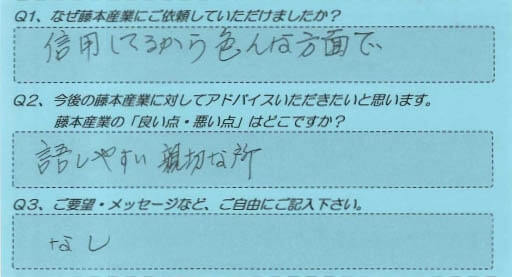 Q1、なぜ藤本産業にご依頼していただけましたか？
信用してるから色んな方面で、
Q2、今後の藤本産業に対してアドバイスいただきたいと思います。
藤本産業の「良い点・悪い点」はどこですか？
話しやすい 親切な所
Q3、ご要望・メッセージなど、ご自由にご記入下さい。
なし